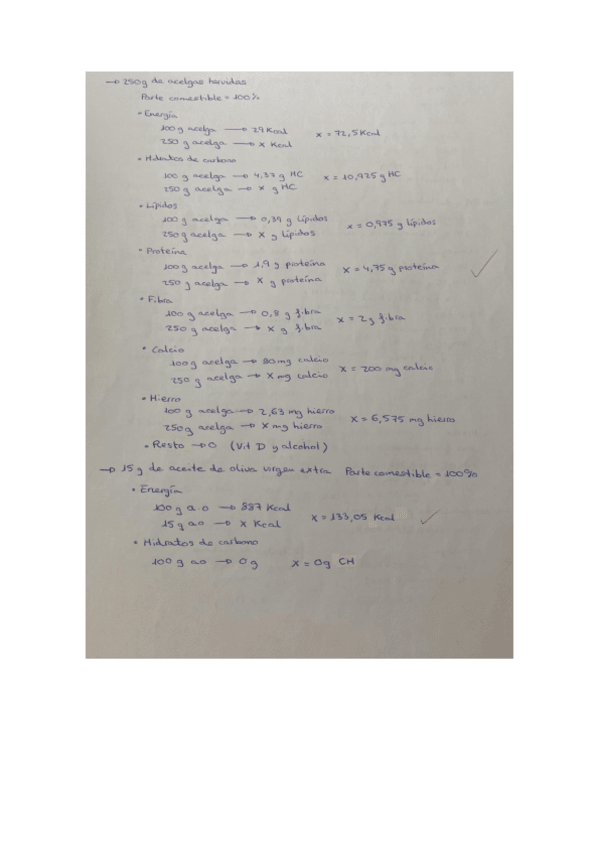 → 250g de acelgas hervidas
Parte comestible = 100%
• Energía
100 g acelga → 29 Kcal
250 g acelga → x Kcal
x = 72,5 Kcal
• Hidratos de carbono
100 g acelga → 4,37 g HC
250 g acelga → x g HC
x = 10,925 g HC
• Lípidos
100 g acelga → 0,39 g Lípidos
250 g acelga → x g Lípidos
x = 0,975 g Lípidos
• Proteína
100 g acelga → 1,9 g proteína
250 g acelga → x g proteína
x = 4,75 g proteína
• Fibra
100 g acelga → 0,8 g fibra
250 g acelga → x g fibra
x = 2 g fibra
• Calcio
100 g acelga → 80 mg calcio
250 g acelga → x mg calcio
x = 200 mg calcio
• Hierro
100 g acelga → 2,63 mg hierro
250 g acelga → x mg hierro
x = 6,575 mg hierro
• Resto → 0 (Vit D y alcohol)
→ 15 g de aceite de oliva virgen extra Parte comestible = 100%
• Energía
100 g a.o → 887 Kcal
15 g a.o → x Kcal
x = 133,05 Kcal
• Hidratos de carbono
100 g a.o → 0 g
x = 0g CH